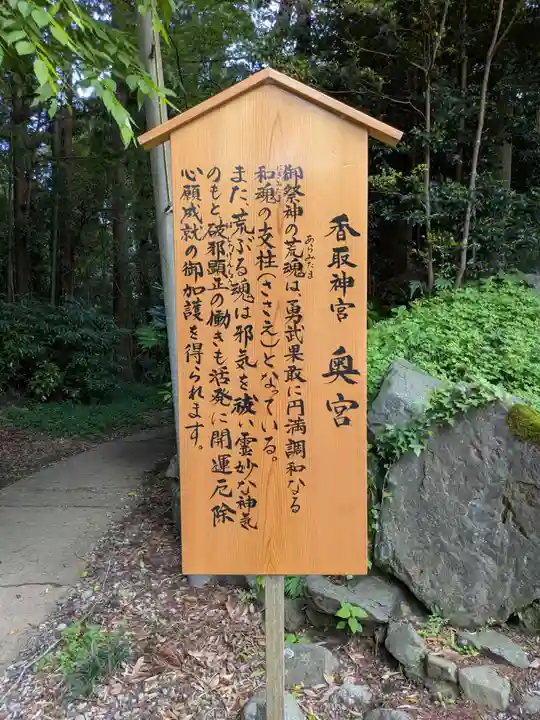 香取神宮 奥宮
御祭神の荒魂は、勇武果敢に円満調和なる
あらみたま
和魂の支柱(ささえ)となっている。
また、荒ぶる魂は邪気を祓い霊妙な神気
のもと破邪顕正の働きも活発に開運厄除
心願成就の御加護を得られます。